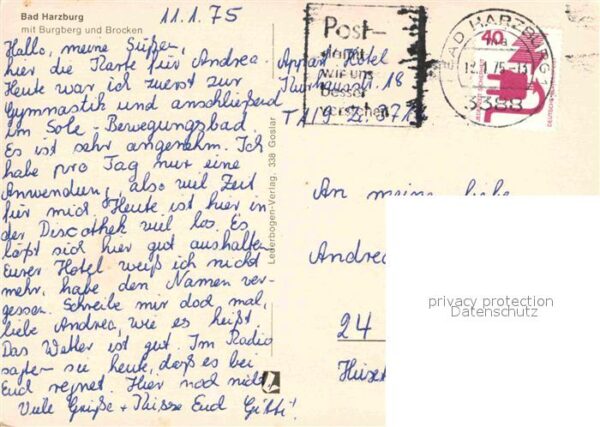 Bad Harzburg
mit Burgberg und Brocken
11.1.75
Hallo, meine Süßen,
hier die Karte für Andrea.
Heute war ich zuerst zur
Gymnastik und anschließend
im Sole-Bewegungsbad.
Es ist sehr angenehm. Ich
habe pro Tag nur eine
Anwendun, also viel Zeit
für mich. Heute ist hier in
der Discothek viel los. Es
läßt sich hier gut aushalten.
Eurer Hotel weiß ich nicht
mehr, habe den Namen ver-
gessen. Schreibe mir doch mal,
liebe Andrea, wie es heißt.
Das Wetter ist gut. Im Radio
sagten sie heute, daß es bei
Euch regnet. Hier noch nicht.
Viele Grüße + Küsse Eud Gitti!
Appart Hotel
18
Post-
damit
wir uns
besser
verstehen
BAD HARZBURG 1
3388
40
Lederbogen-Verlag, 338 Goslar
An meine liebe
Andrea
24
privacy protection
Datenschutz